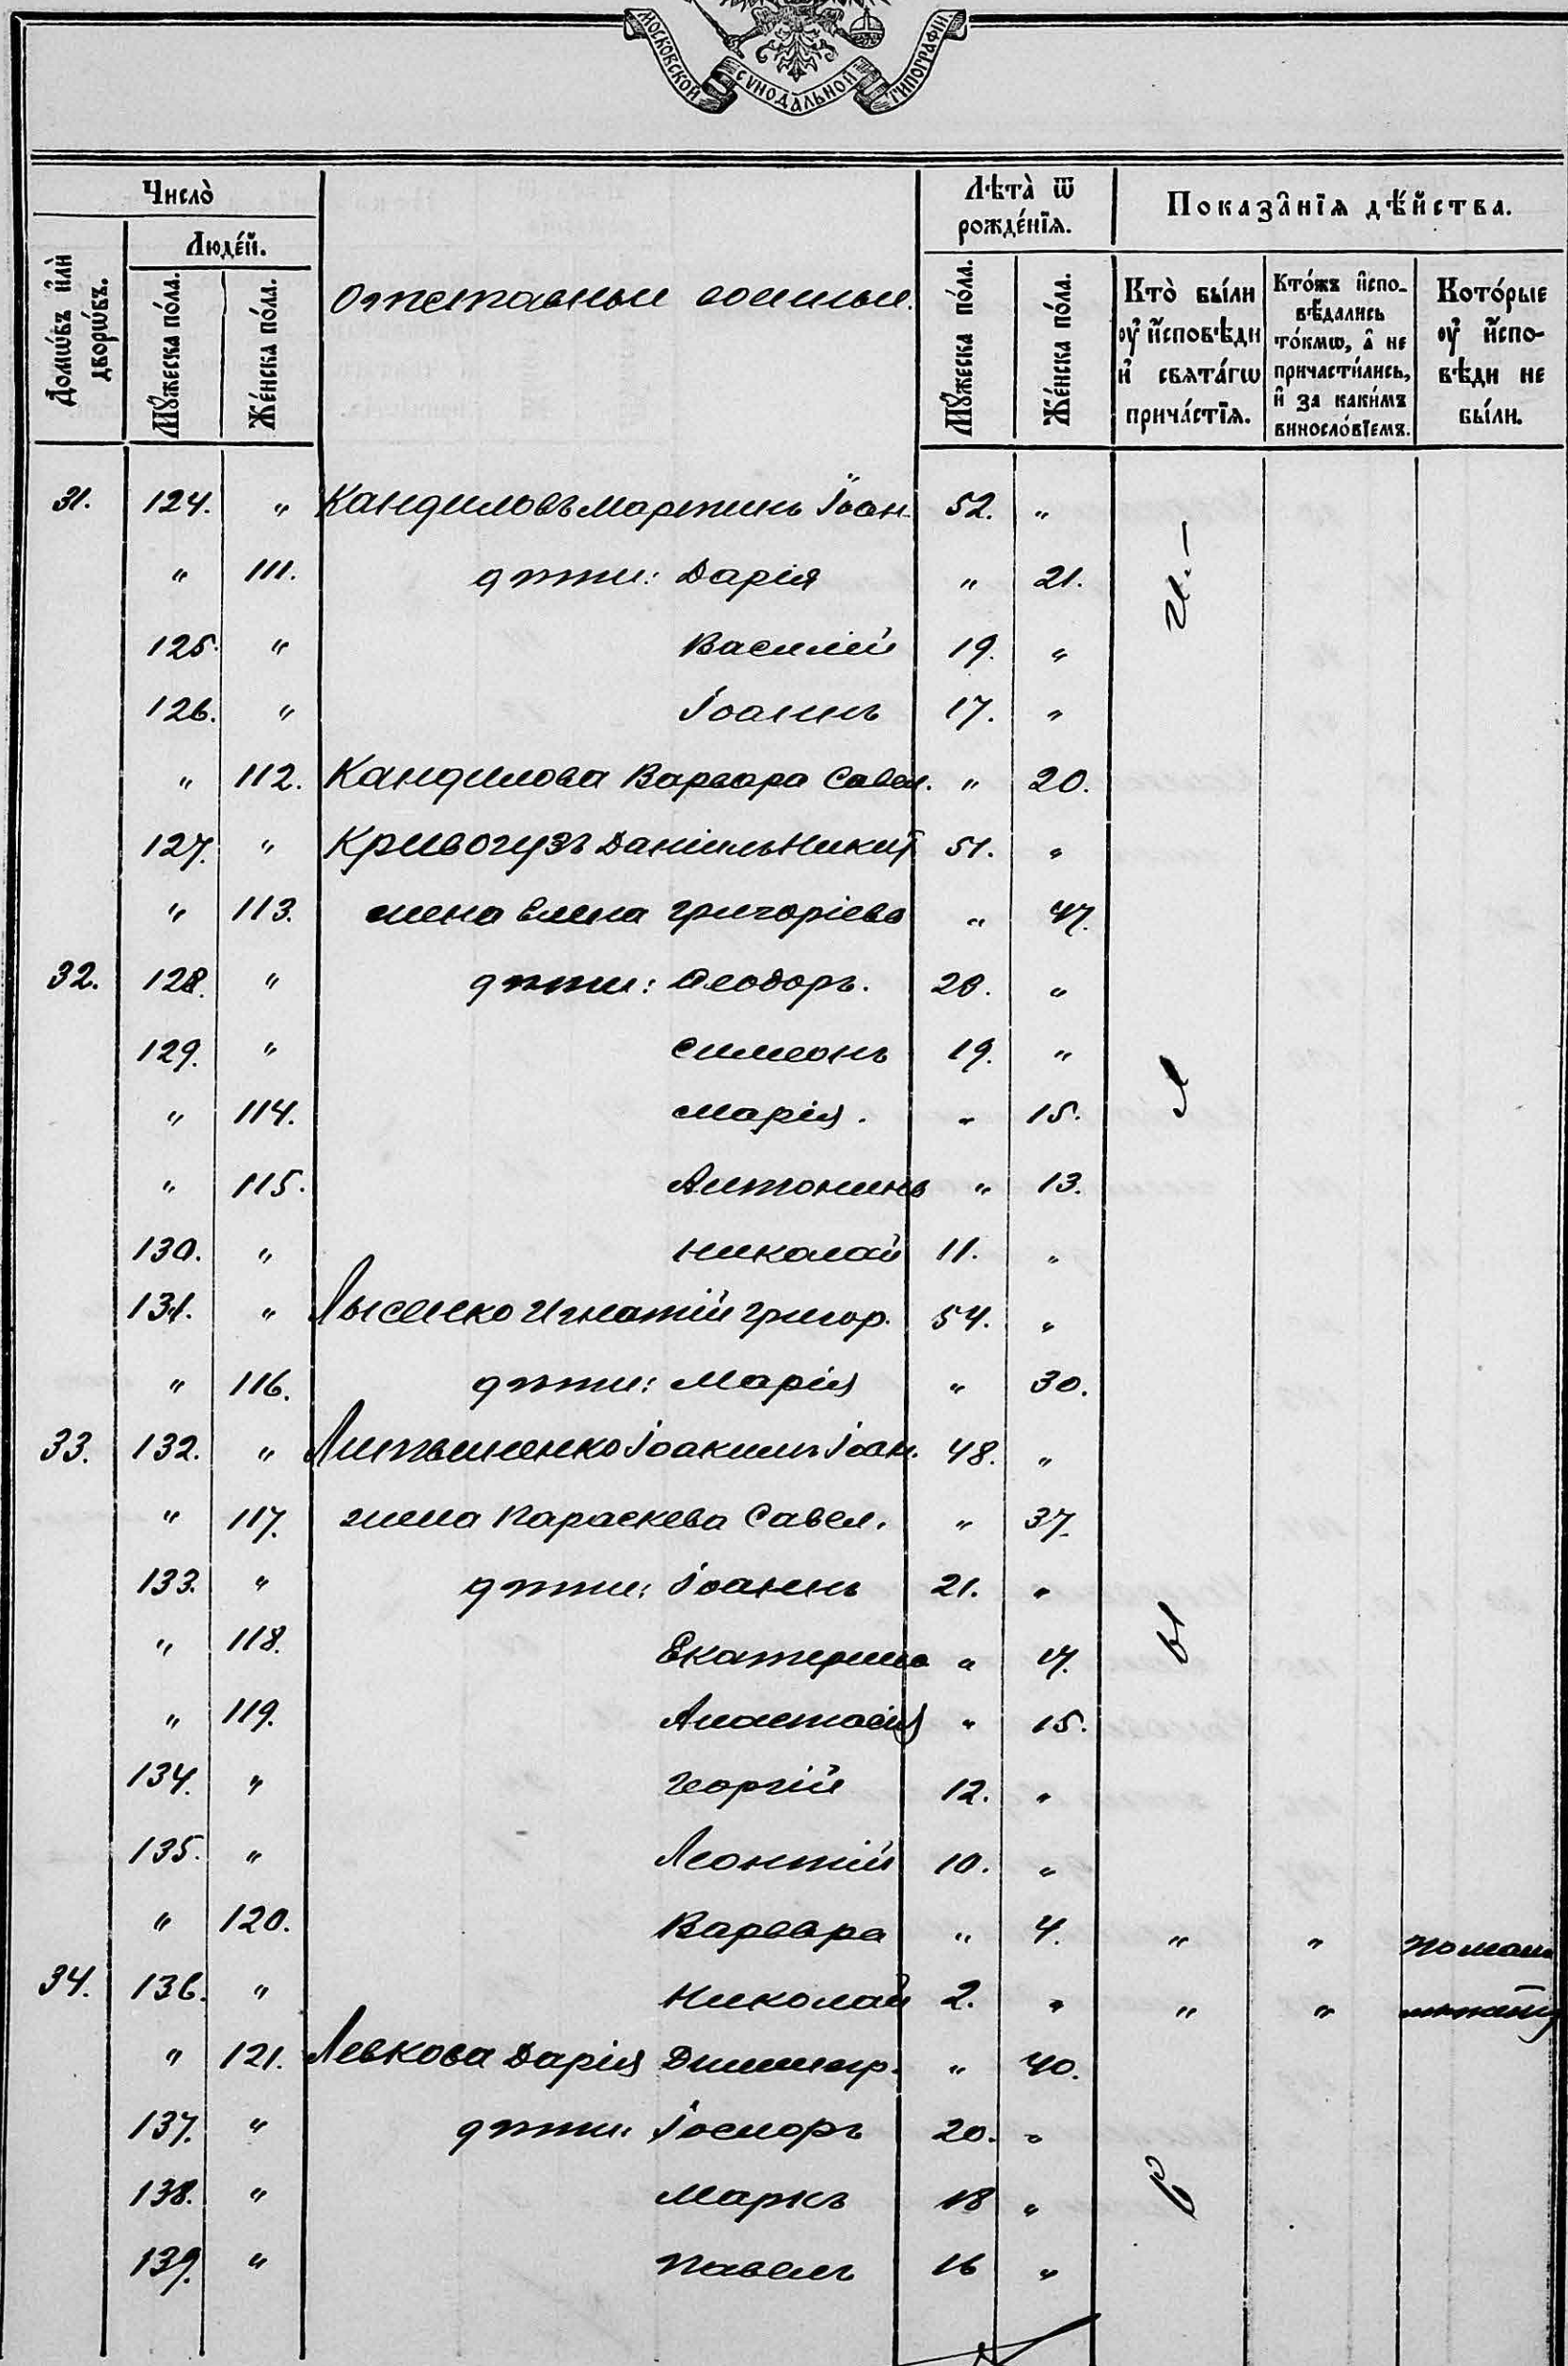 МОСКОВСКОЙ СѴНОДАЛЬНОЙ ТИПОГРАФІИ
Число̀
Людéй.
Домѡ́въ и҆лѝ дворѡ́въ.
Мꙋ́жеска по́ла.
Же́нска по́ла.
Отставные военные.
Лѣ́та ѿ рожде́нїѧ.
Мꙋ́жеска по́ла.
Же́нска по́ла.
Показа̂нїѧ дѣ́йства.
Кто̀ бы́ли ᲂу҆ и҆́сповѣди и҆ свѧта́гѡ прича́стїѧ.
Кто́жъ и҆спо-вѣ́дались то́кмѡ, а҆ не причасти́лись, и҆ за каки́мъ винослóвїемъ.
Кото́рые ᲂу҆ и҆́спо-вѣди не бы́ли.
31. 124. " Кандиловъ Мартинъ Іоан. 52. "
" 111. дѣти: Дарія " 21.
125. " Василій 19. "
126. " Іоаннъ 17. "
" 112. Кандилова Варвара Савел. " 20.
127. " Кривогузъ Даніилъ Никит 51. "
" 113. жена Елена Григоріева " 47.
32. 128. " дѣти: Ѳеодоръ. 20. "
129. " Симеонъ 19. "
" 114. Марія. " 15.
" 115. Антонина " 13.
130. " Николай 11. "
131. " Лысенко Игнатій Григор. 54. "
" 116. дѣти: Марія " 30.
33. 132. " Іоакимъ Іоан. 48. "
" 117. жена Параскева Савел. " 37.
133. " дѣти: Іоаннъ 21. "
" 118. Екатерина " 17.
" 119. Анастасія " 15.
134. " Георгій 12. "
135. " Леонтій 10. "
" 120. Варвара " 4. " " по мало
34. 136. " Николай 2. " " "
" 121. Левкова Дарія Димитр. " 40.
137. " дѣти: 20. "
138. " Маркъ 18 "
139. " Павелъ 16 "